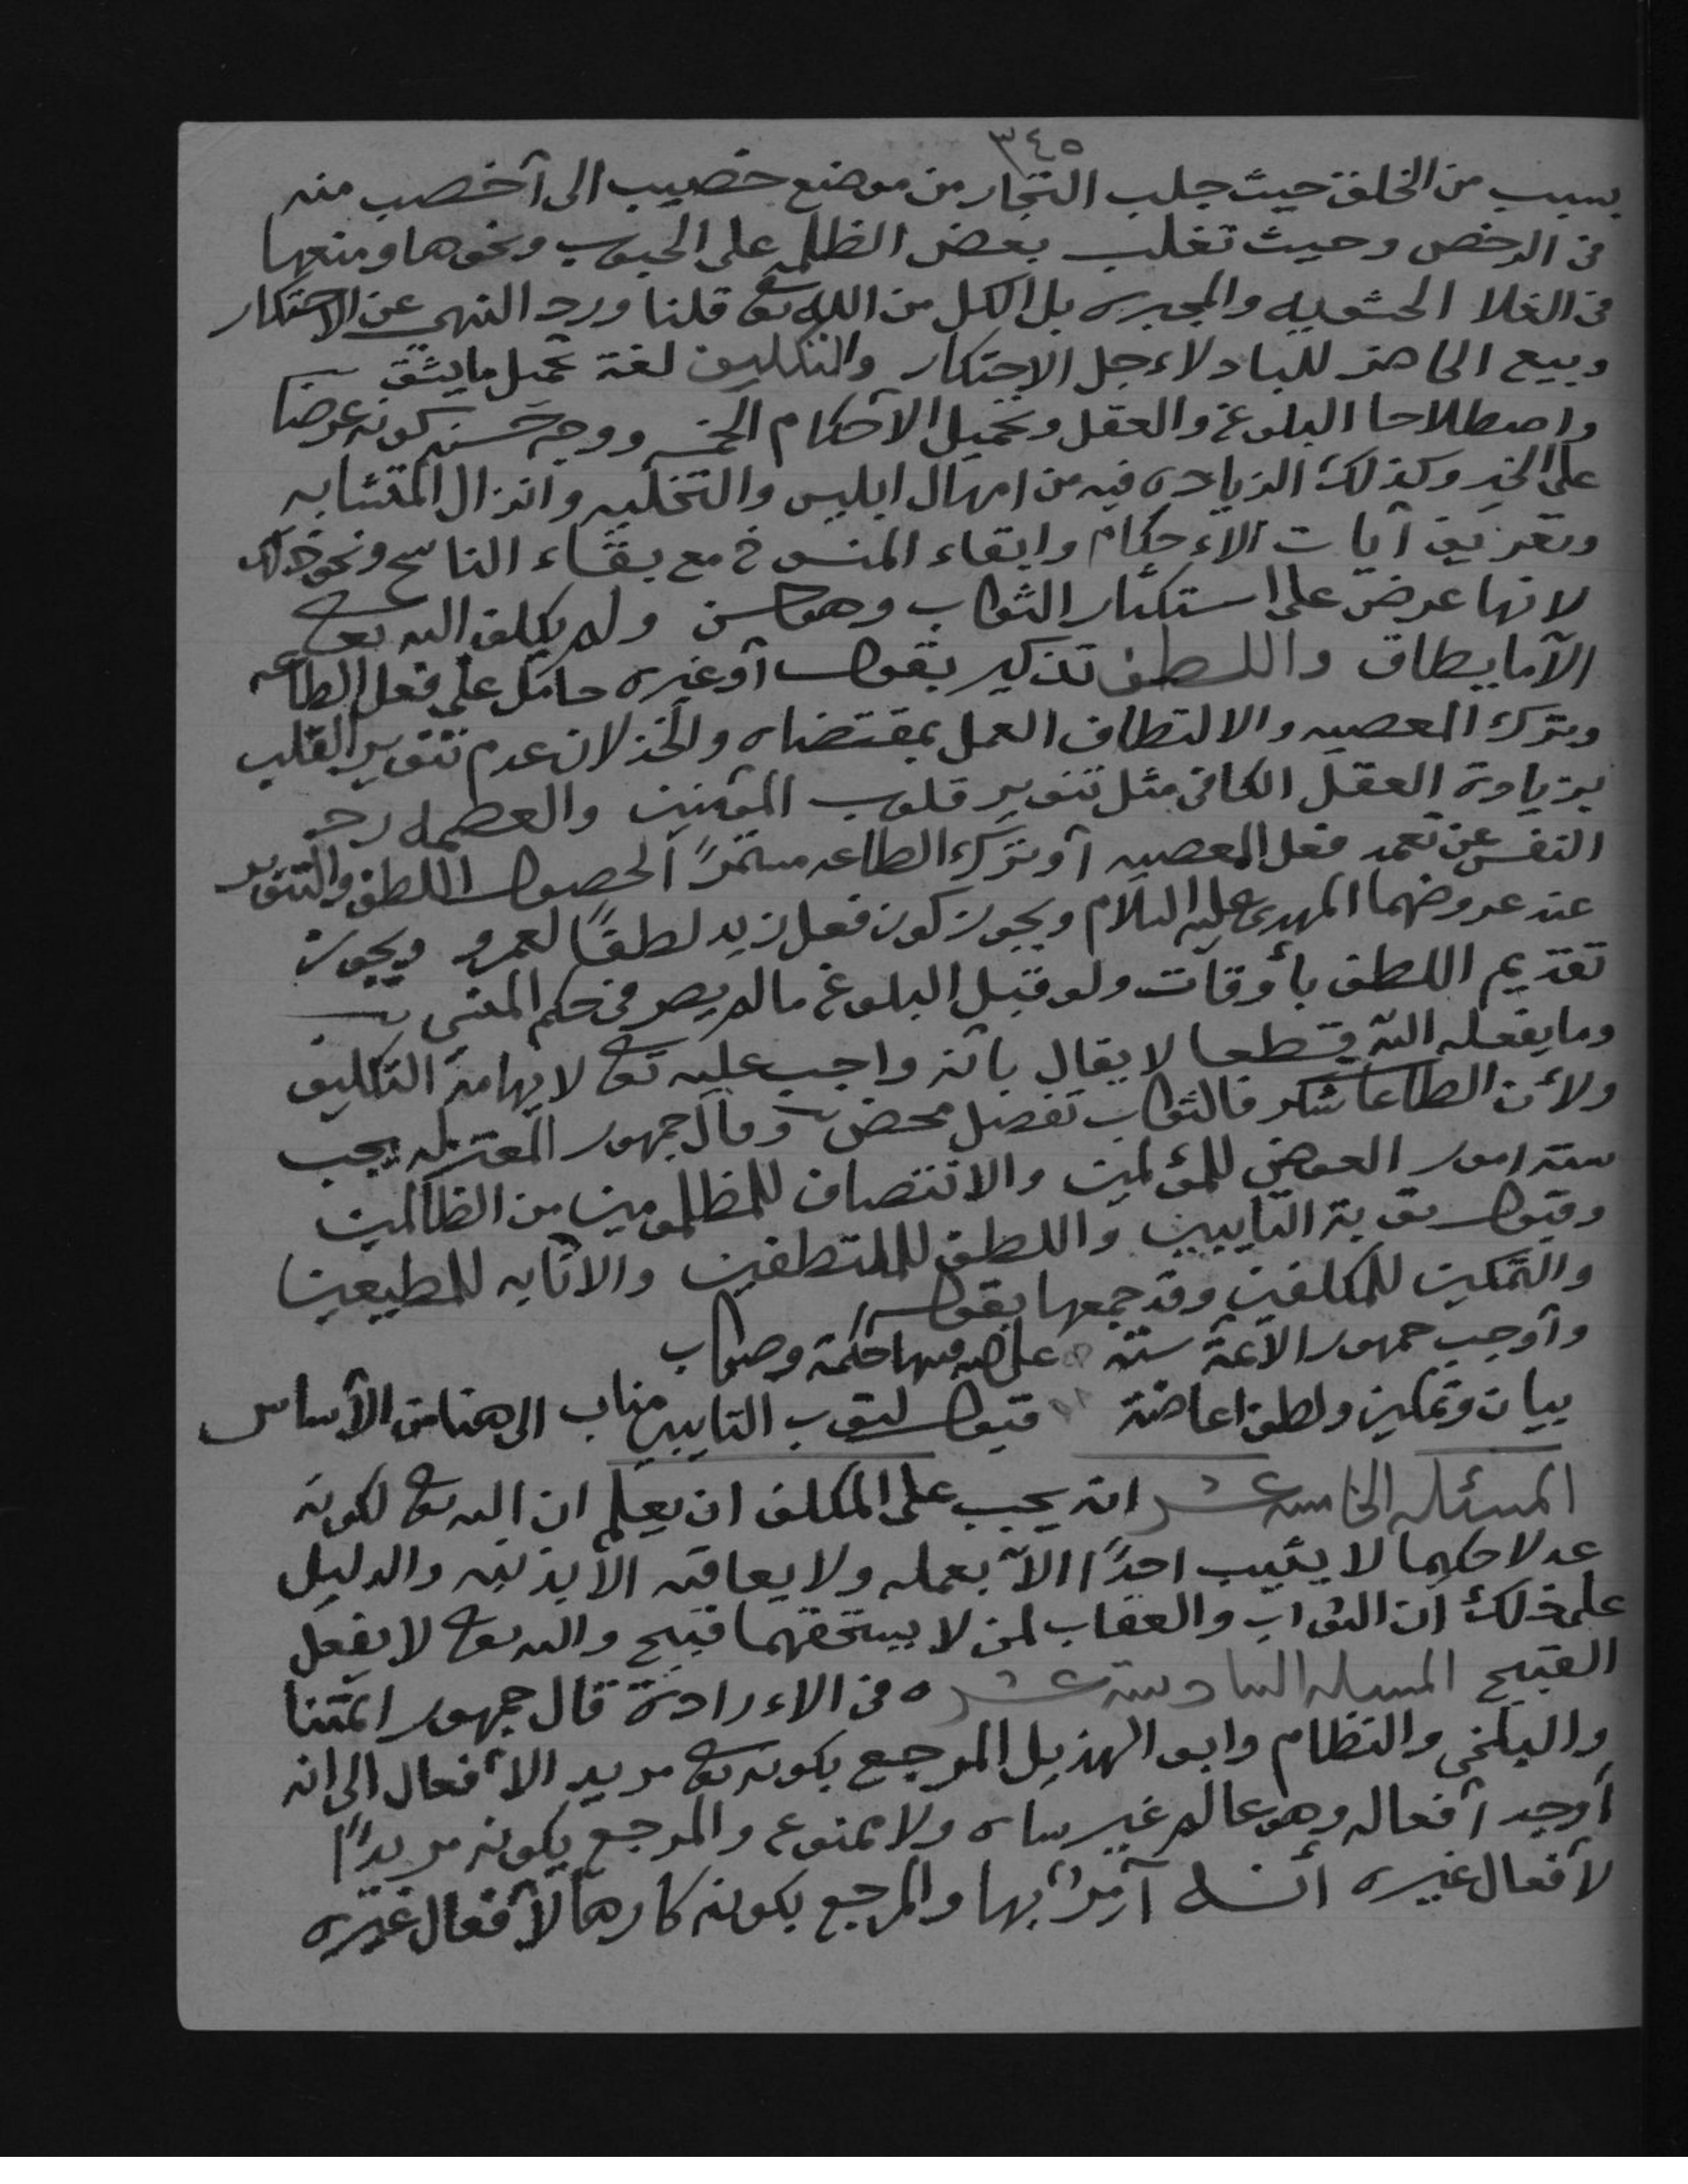 ٣٤٥
بسبب من الخلق حيث جلب التجار من موضع خصيب الى آخصب منه
في الرخص وحيث تغلب بعض الظلمه على الحبوب ونحوها ومنعها
في الغلا الحشويه والمجبره بل الكل من الله تع قلنا ورد النهي عن الاحتكار
وبيع الحاضر للباد لاءجل الاحتكار والتكليف لغة تحميل ما يشق
واصطلاحا البلوغ والعقل وتحميل الأحكام الخمسه ووجه حسنه كونه عرضا
على الخير وكذلك الزياده فيه من امهال ابليس والتخليه وانزال المتشابه
وتفريق آيات الاءحكام وابقاء المنسوخ مع بقاء الناسخ ونحو ذلك
لانها عرض على استكثار الثواب وهو حسن ولم يكلف الله تعالى
الآ ما يطاق واللطف تذكير بقول آو غيره حامل على فعل الطاعه
وترك المعصيه والالتطاف العمل بمقتضاه والخذلان عدم تنوير القلب
بزيادة العقل الكافي مثل تنوير قلوب المؤمنين والعصمه رد
النفس عن تعمد فعل المعصيه آو ترك الطاعه مستمرًا لحصول اللطف والتنوير
عند عروضهما المهدي عليه السلام ويجوز كون فعل زيد لطفًا لعمرو ويجوز
تقديم اللطف بأوقات ولو قبل البلوغ ما لم يصر في حكم المنسي
وما يفعله الله قطعا لا يقال بأنه واجب عليه تع لايهامه التكليف
ولأن الطاعات شكر فالثواب تفضل محض وقال جمهور المعتزله يجب
سته امور العوض للمؤلمين والانتصاف للمظلومين من الظالمين
وقبول توبة التايبين واللطف للملتطفين والاثابه للمطيعين
والتمكين للمكلفين وقد جمعها بقوله
وآوجب جمهور الآئمة ستة على الله فيها حكمة وصواب
بيان وتمكين ولطف اعاضة قبول لتوب التايبين مناب الى هنا من الأساس
المسئله الخامسه عشر انه يجب على المكلف ان يعلم ان الله تع لكونه
عدلا حكيما لا يثيب احدًا الآ بعمله ولا يعاقبه الآ بذنبه والدليل
على ذلك أن الثواب والعقاب لمن لا يستحقهما قبيح والله تع لا يفعل
القبيح المسئله السادسة عشره في الاءرادة قال جمهور ائمتنا
والبلخي والنظام وابو الهذيل المرجع بكونه تع مريد الأفعال الى انه
أوجد آفعاله وهو عالم غير ساه ولا ممنوع والمرجع بكونه مريدًا
لأفعال غيره أنه آمرٌ بها والمرجع بكونه كارها لأفعال غيره